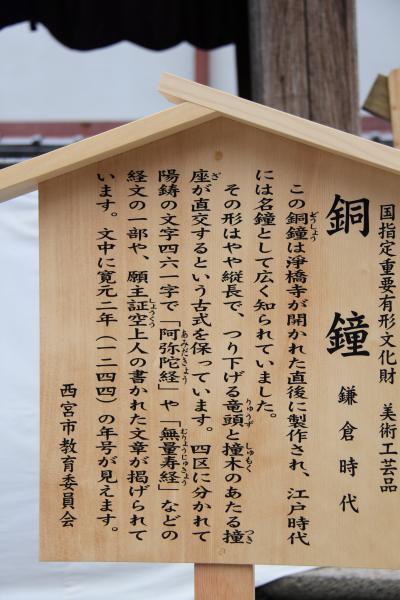 国指定重要有形文化財　美術工芸品
銅鐘　鎌倉時代
この銅鐘は淨橋寺が開かれた直後に製作され、江戸時代
には名鐘として広く知られていました。
その形はやや縦長で、つり下げる竜頭と撞木のあたる撞
座が直交するという古式を保っています。四区に分かれて
陽鋳の文字四六一字で「阿弥陀経」や「無量寿経」などの
経文の一部や、願主証空上人の書かれた文章が掲げられて
います。文中に寛元二年（一二四四）の年号が見えます。
西宮市教育委員会